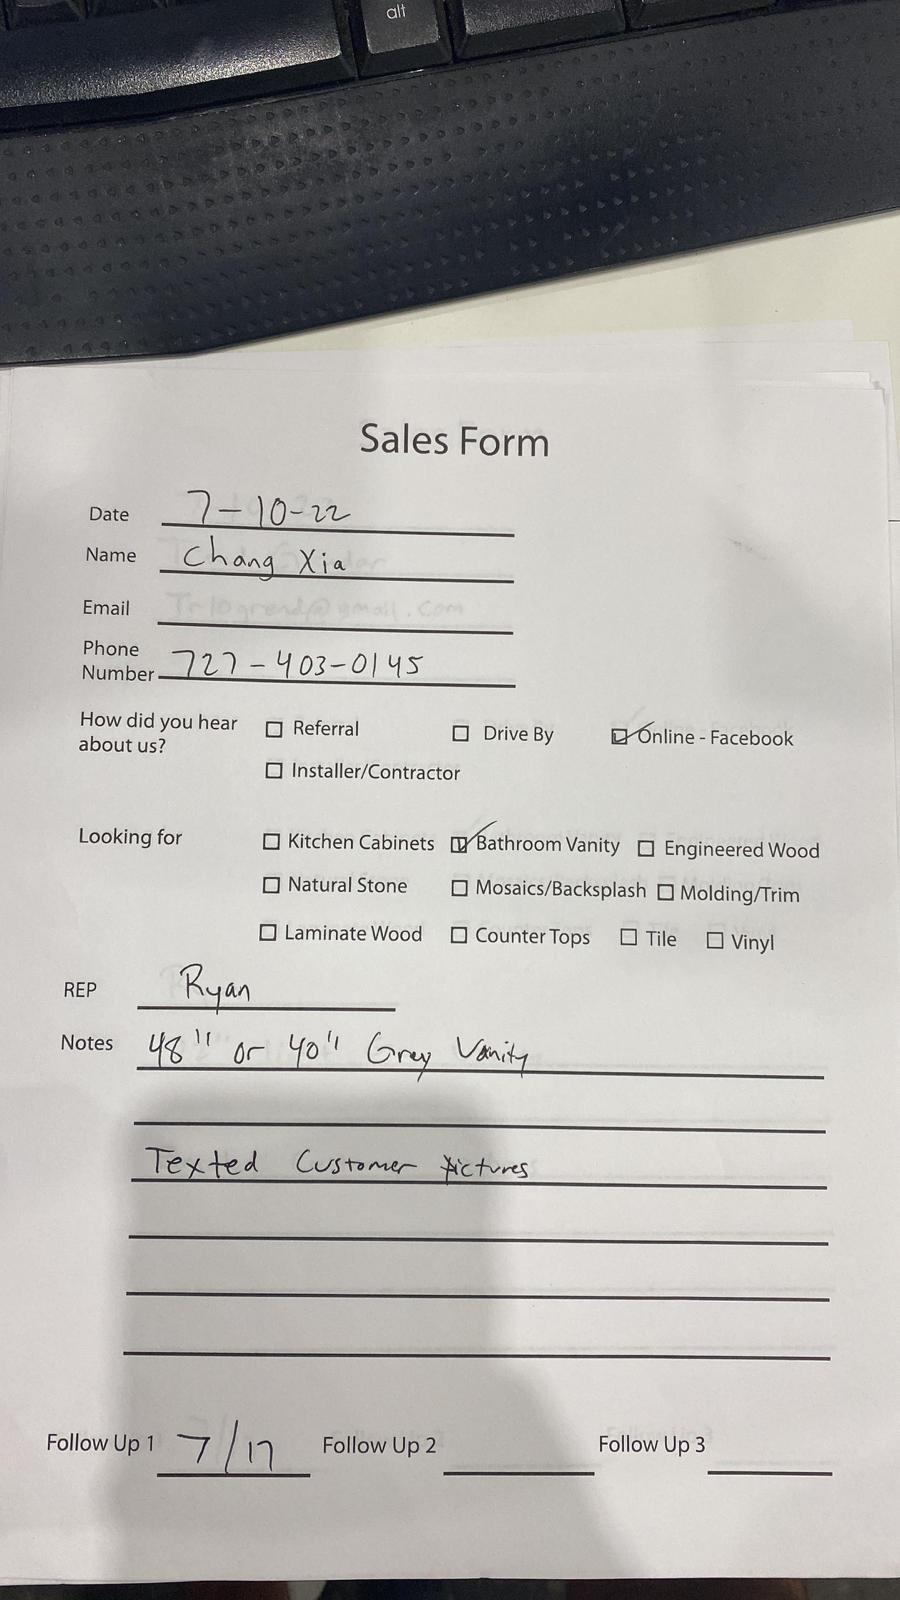 alt
Sales Form
Date 7-10-22
Name Chang Xia
Email
Phone
Number 727-403-0145
How did you hear
about us?
☐ Referral ☐ Drive By ☑ Online - Facebook
☐ Installer/Contractor
Looking for ☐ Kitchen Cabinets ☑ Bathroom Vanity ☐ Engineered Wood
☐ Natural Stone ☐ Mosaics/Backsplash ☐ Molding/Trim
☐ Laminate Wood ☐ Counter Tops ☐ Tile ☐ Vinyl
REP Ryan
Notes 48" or 40" Grey Vanity
Texted Customer pictures
Follow Up 1 7/17 Follow Up 2 Follow Up 3